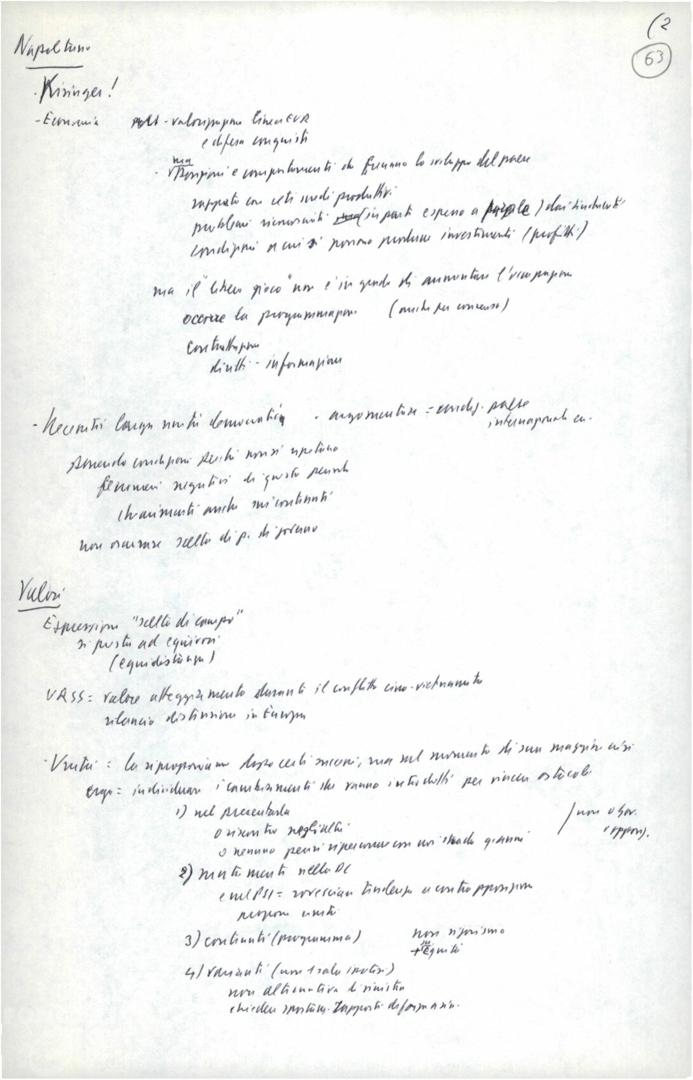 (2
63
Napolitano
- Kissinger!
- Economia - valorizzazione linea EUR
e difesa conquisti
ma
· posizioni e comportamenti che frenano lo sviluppo del paese
rapporto con ceti medi produttivi
problemi riconosciuti (in parti espunto a) dai sindacati
condizioni a cui si possono produrre investimenti (profitti)
ma il "libero gioco" non è in grado di aumentare l'occupazione
occorre la programmazione (anche per consenso)
contrattazione
diritti - informazione
- Necessità larga unità democratica - argomentare = condiz. paese
internazionale ecc.
ponendo condizioni perché non si ripetano
fenomeni negativi di questo periodo
chiarimenti anche sui contenuti
non oscurare scelta di p. di governo
Valori
Espressione "scelta di campo"
si presta ad equivoci
(equidistanza)
URSS = valore atteggiamento durante il conflitto cino-vietnamita
rilancio distensione in Europa
- Unità = la riproponiamo dopo certi successi, ma nel momento di sua maggiore crisi
ergo = individuare i cambiamenti che vanno introdotti per vincere ostacoli
1) nel presentarla
o riscontro negli altri
o nessuno pensi riprecorrere con noi strada giorni
/ non o Gov.
o oppos.
2) mutamenti nella DC
e nel PSI = rovesciare tendenza a contrapposizione
proporre unità
3) contenuti (programma) non rigorismo
+ equità
4) varianti (non 1 sola ipotesi)
non alternativa di sinistra
chiedere spostam. rapporti di forza sin.